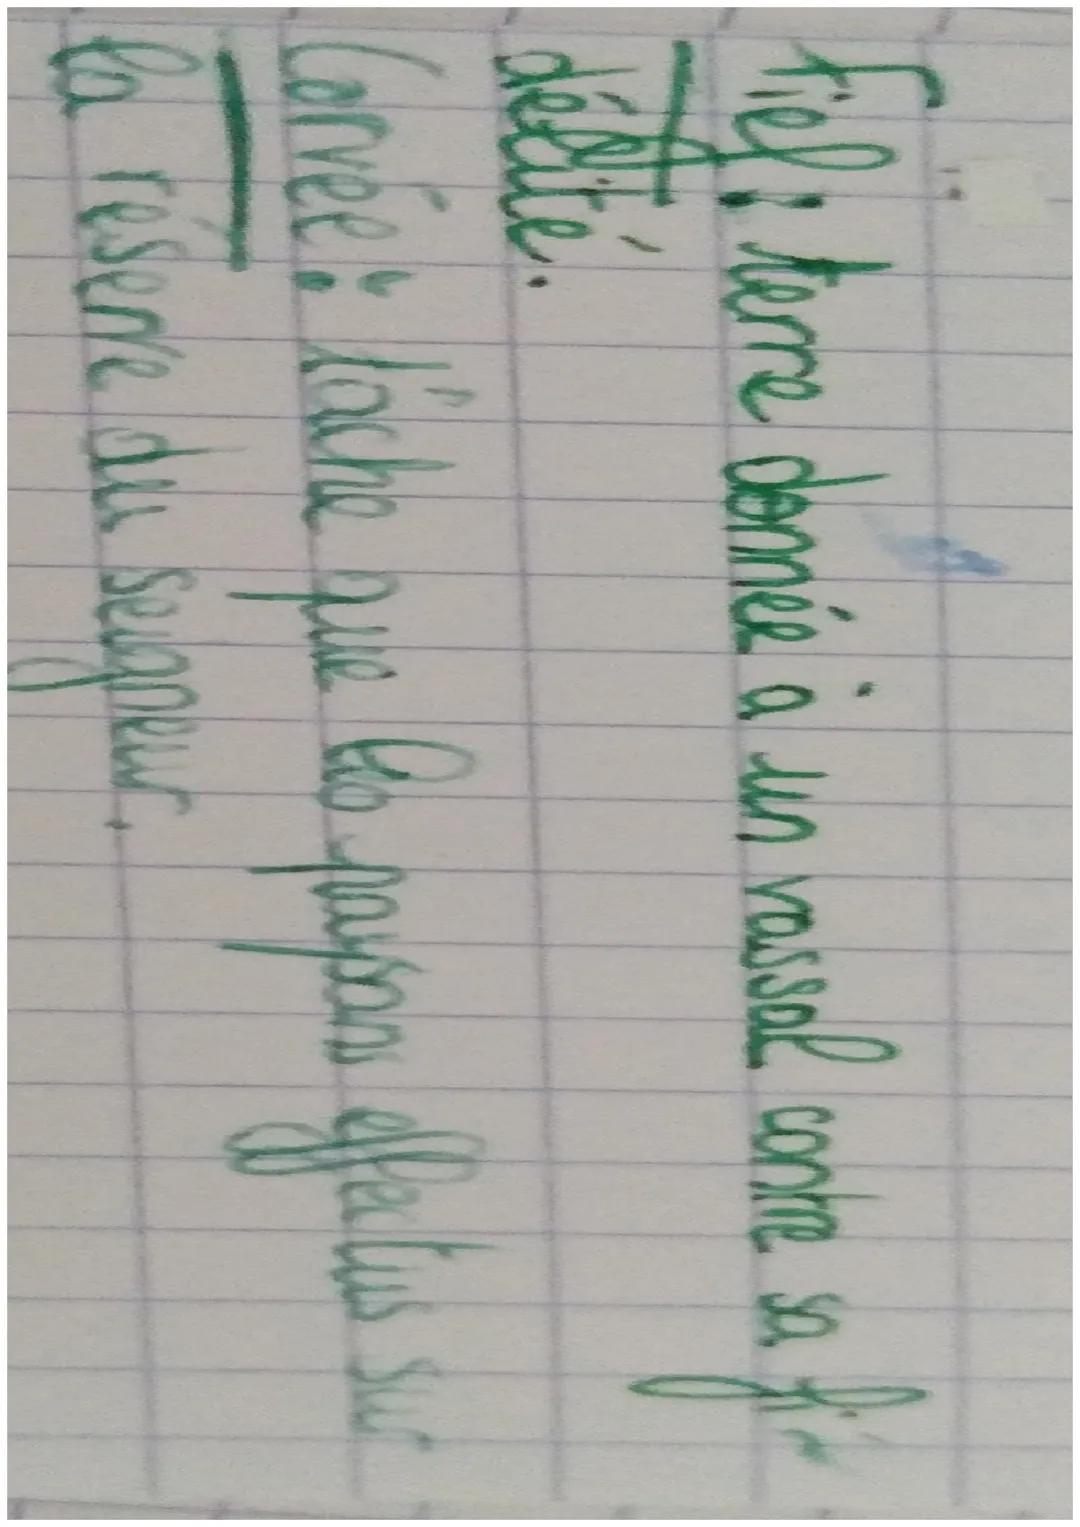 Fief : terre donnée à un vassal contre sa fi-
délité.
Corvée : tâche que le paysans effectus sur
la réserve du seigneur.